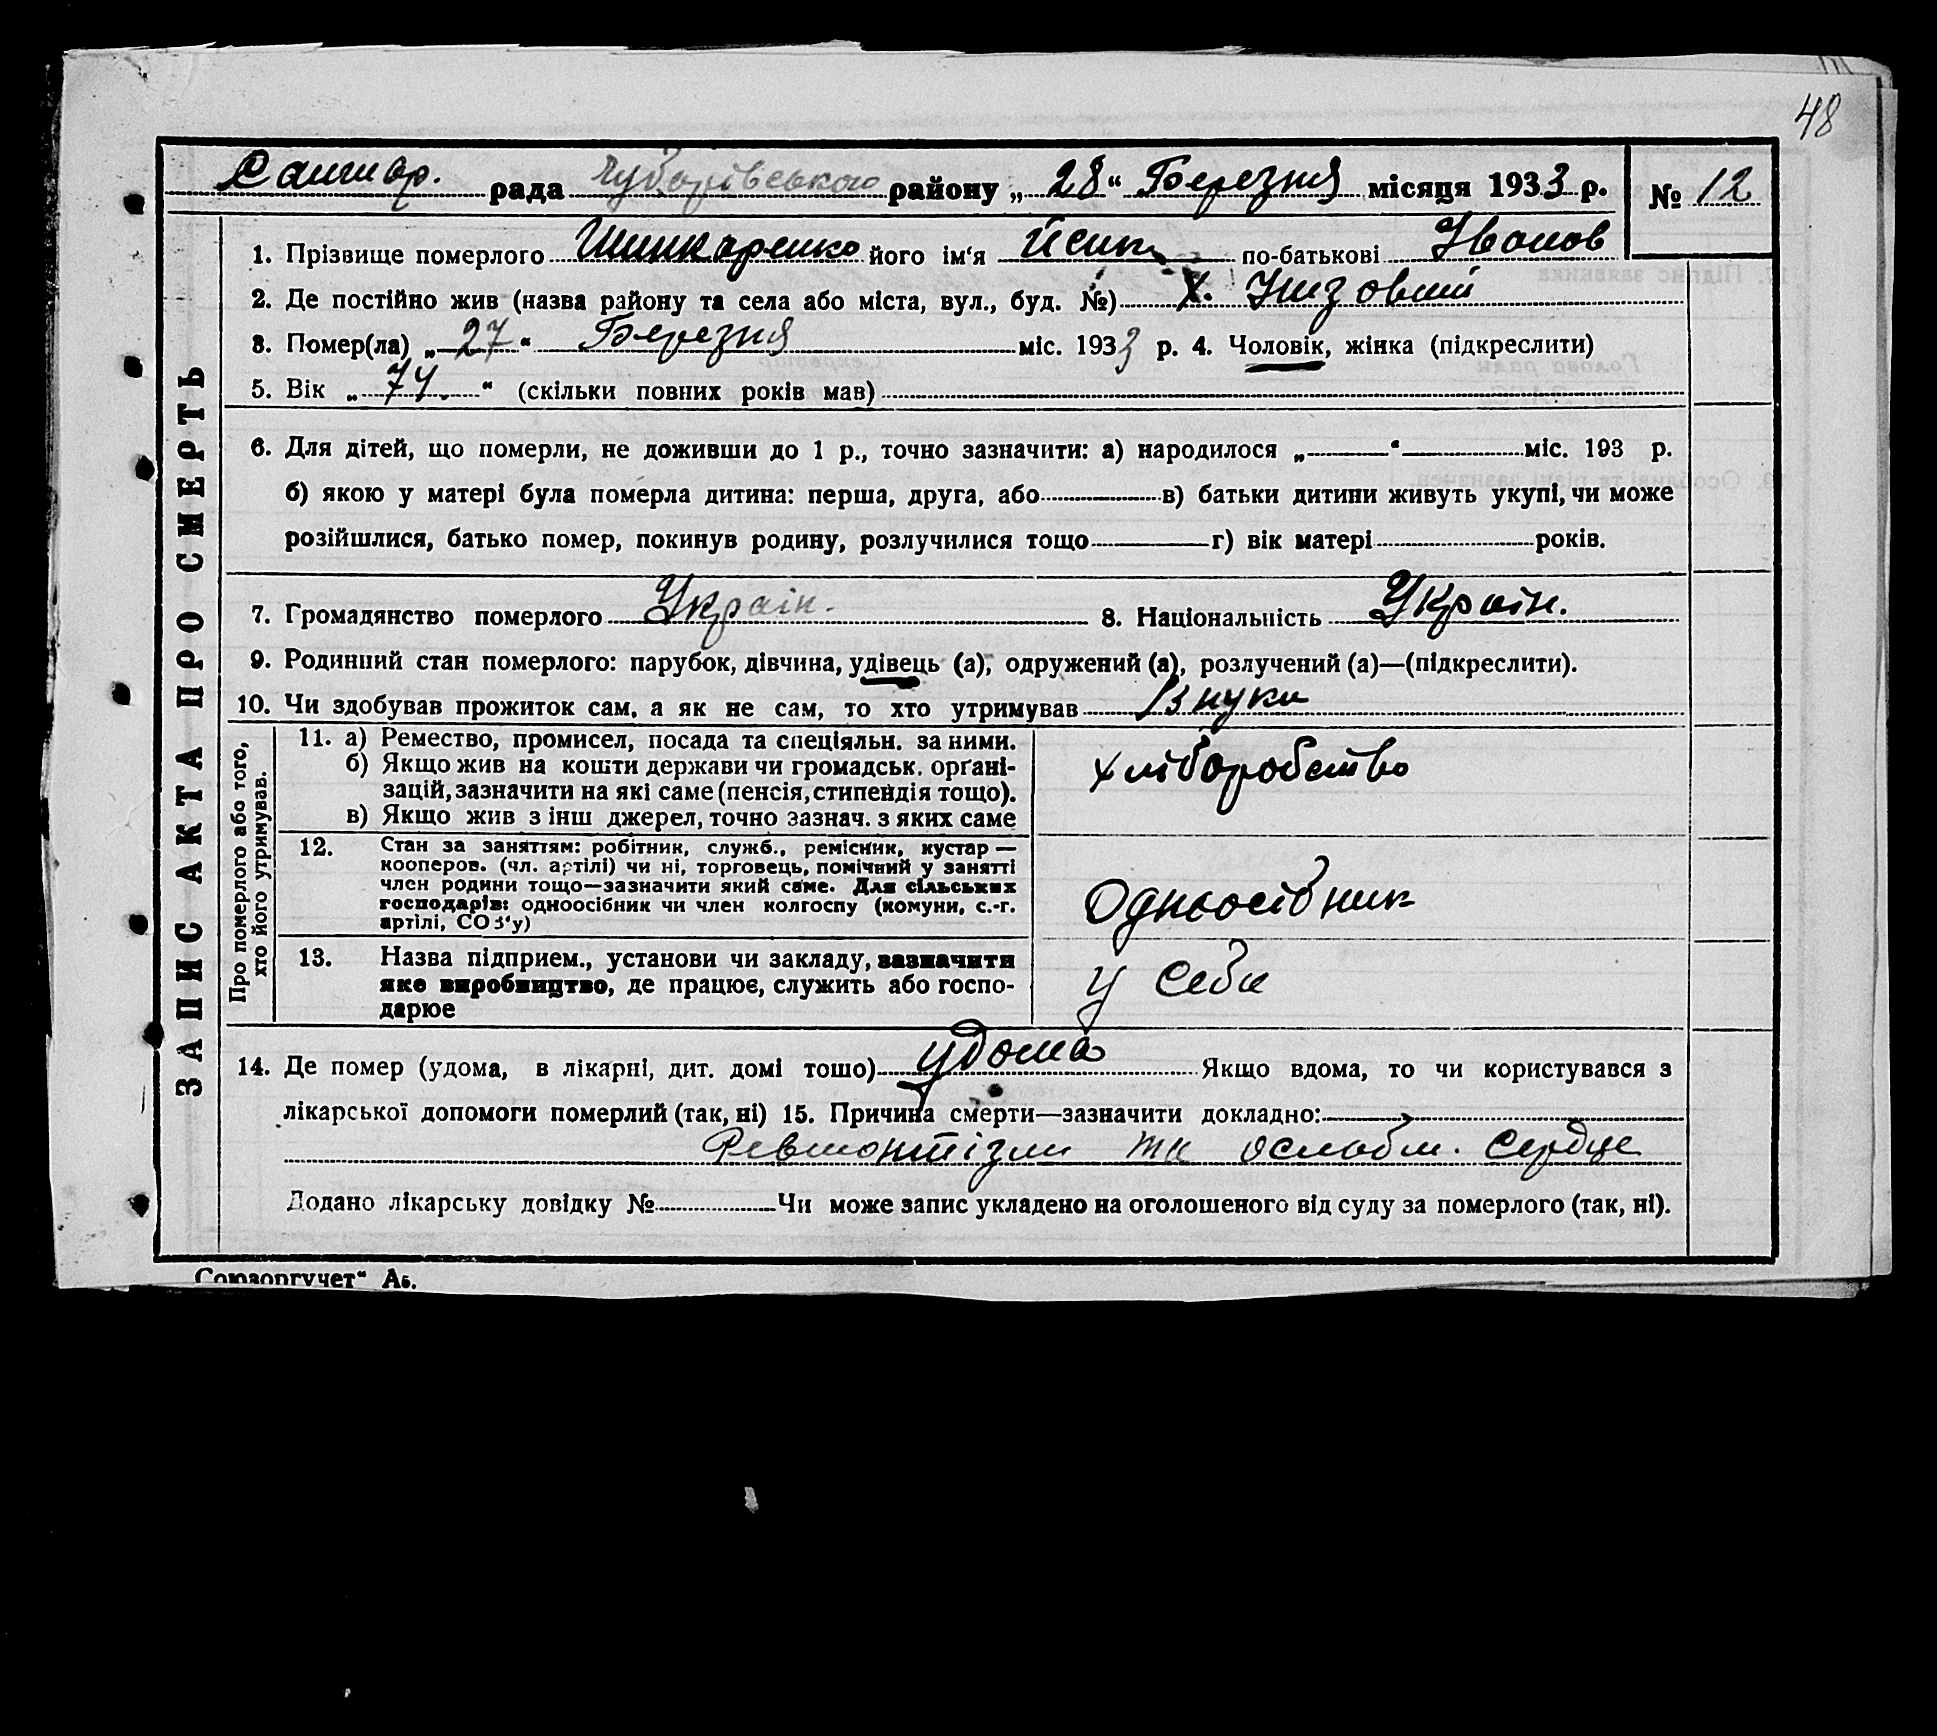 48
рада Чубарівського району „28“ Березня місяця 1933 р. № 12
1. Прізвище померлого Шинкаренко його ім‘я Йосип по-батькові Іванов
2. Де постійно жив (назва району та села або міста, вул., буд. №) х. Низовий
3. Помер(ла) „27“ Березня міс. 1933 р. 4. Чоловік, жінка (підкреслити)
5. Вік „74.“ (скільки повних років мав)
6. Для дітей, що померли, не доживши до 1 р., точно зазначити: а) народилося „—“— міс. 193 р.
б) якою у матері була померла дитина: перша, друга, або — в) батьки дитини живуть укупі, чи може
розійшлися, батько помер, покинув родину, розлучилися тощо — г) вік матері — років.
7. Громадянство померлого Україн. 8. Національність Україн.
9. Родинний стан померлого: парубок, дівчина, удівець (а), одружений (а), розлучений (а)—(підкреслити).
10. Чи здобував прожиток сам, а як не сам, то хто утримував Внуки
ЗАПИС АКТА ПРО СМЕРТЬ
Про померлого або того,
хто його утримував.
11. а) Ремество, промисел, посада та спеціяльн. за ними.
б) Якщо жив на кошти держави чи громадськ. органі-
зацій, зазначити на які саме (пенсія, стипендія тощо).
в) Якщо жив з інш джерел, точно зазнач. з яких саме
хліборобство
12. Стан за заняттям: робітник, служб., ремісник, кустар —
кооперов. (чл. артілі) чи ні, торговець, помічний у занятті
член родини тощо—зазначити який саме. Для сільських
господарів: одноосібник чи член колгоспу (комуни, с.-г.
артілі, СОЗ‘у)
Одноосібник
13. Назва підприєм., установи чи закладу, зазначити
яке виробництво, де працює, служить або госпо-
дарює
у себе
14. Де помер (удома, в лікарні, дит. домі тощо) удома Якщо вдома, то чи користувався з
лікарської допомоги померлий (так, ні) 15. Причина смерти—зазначити докладно:
Ревматізм та ослабл. сердце
Додано лікарську довідку № Чи може запис укладено на оголошеного від суду за померлого (так, ні).
Союзоргучет“ Аб.